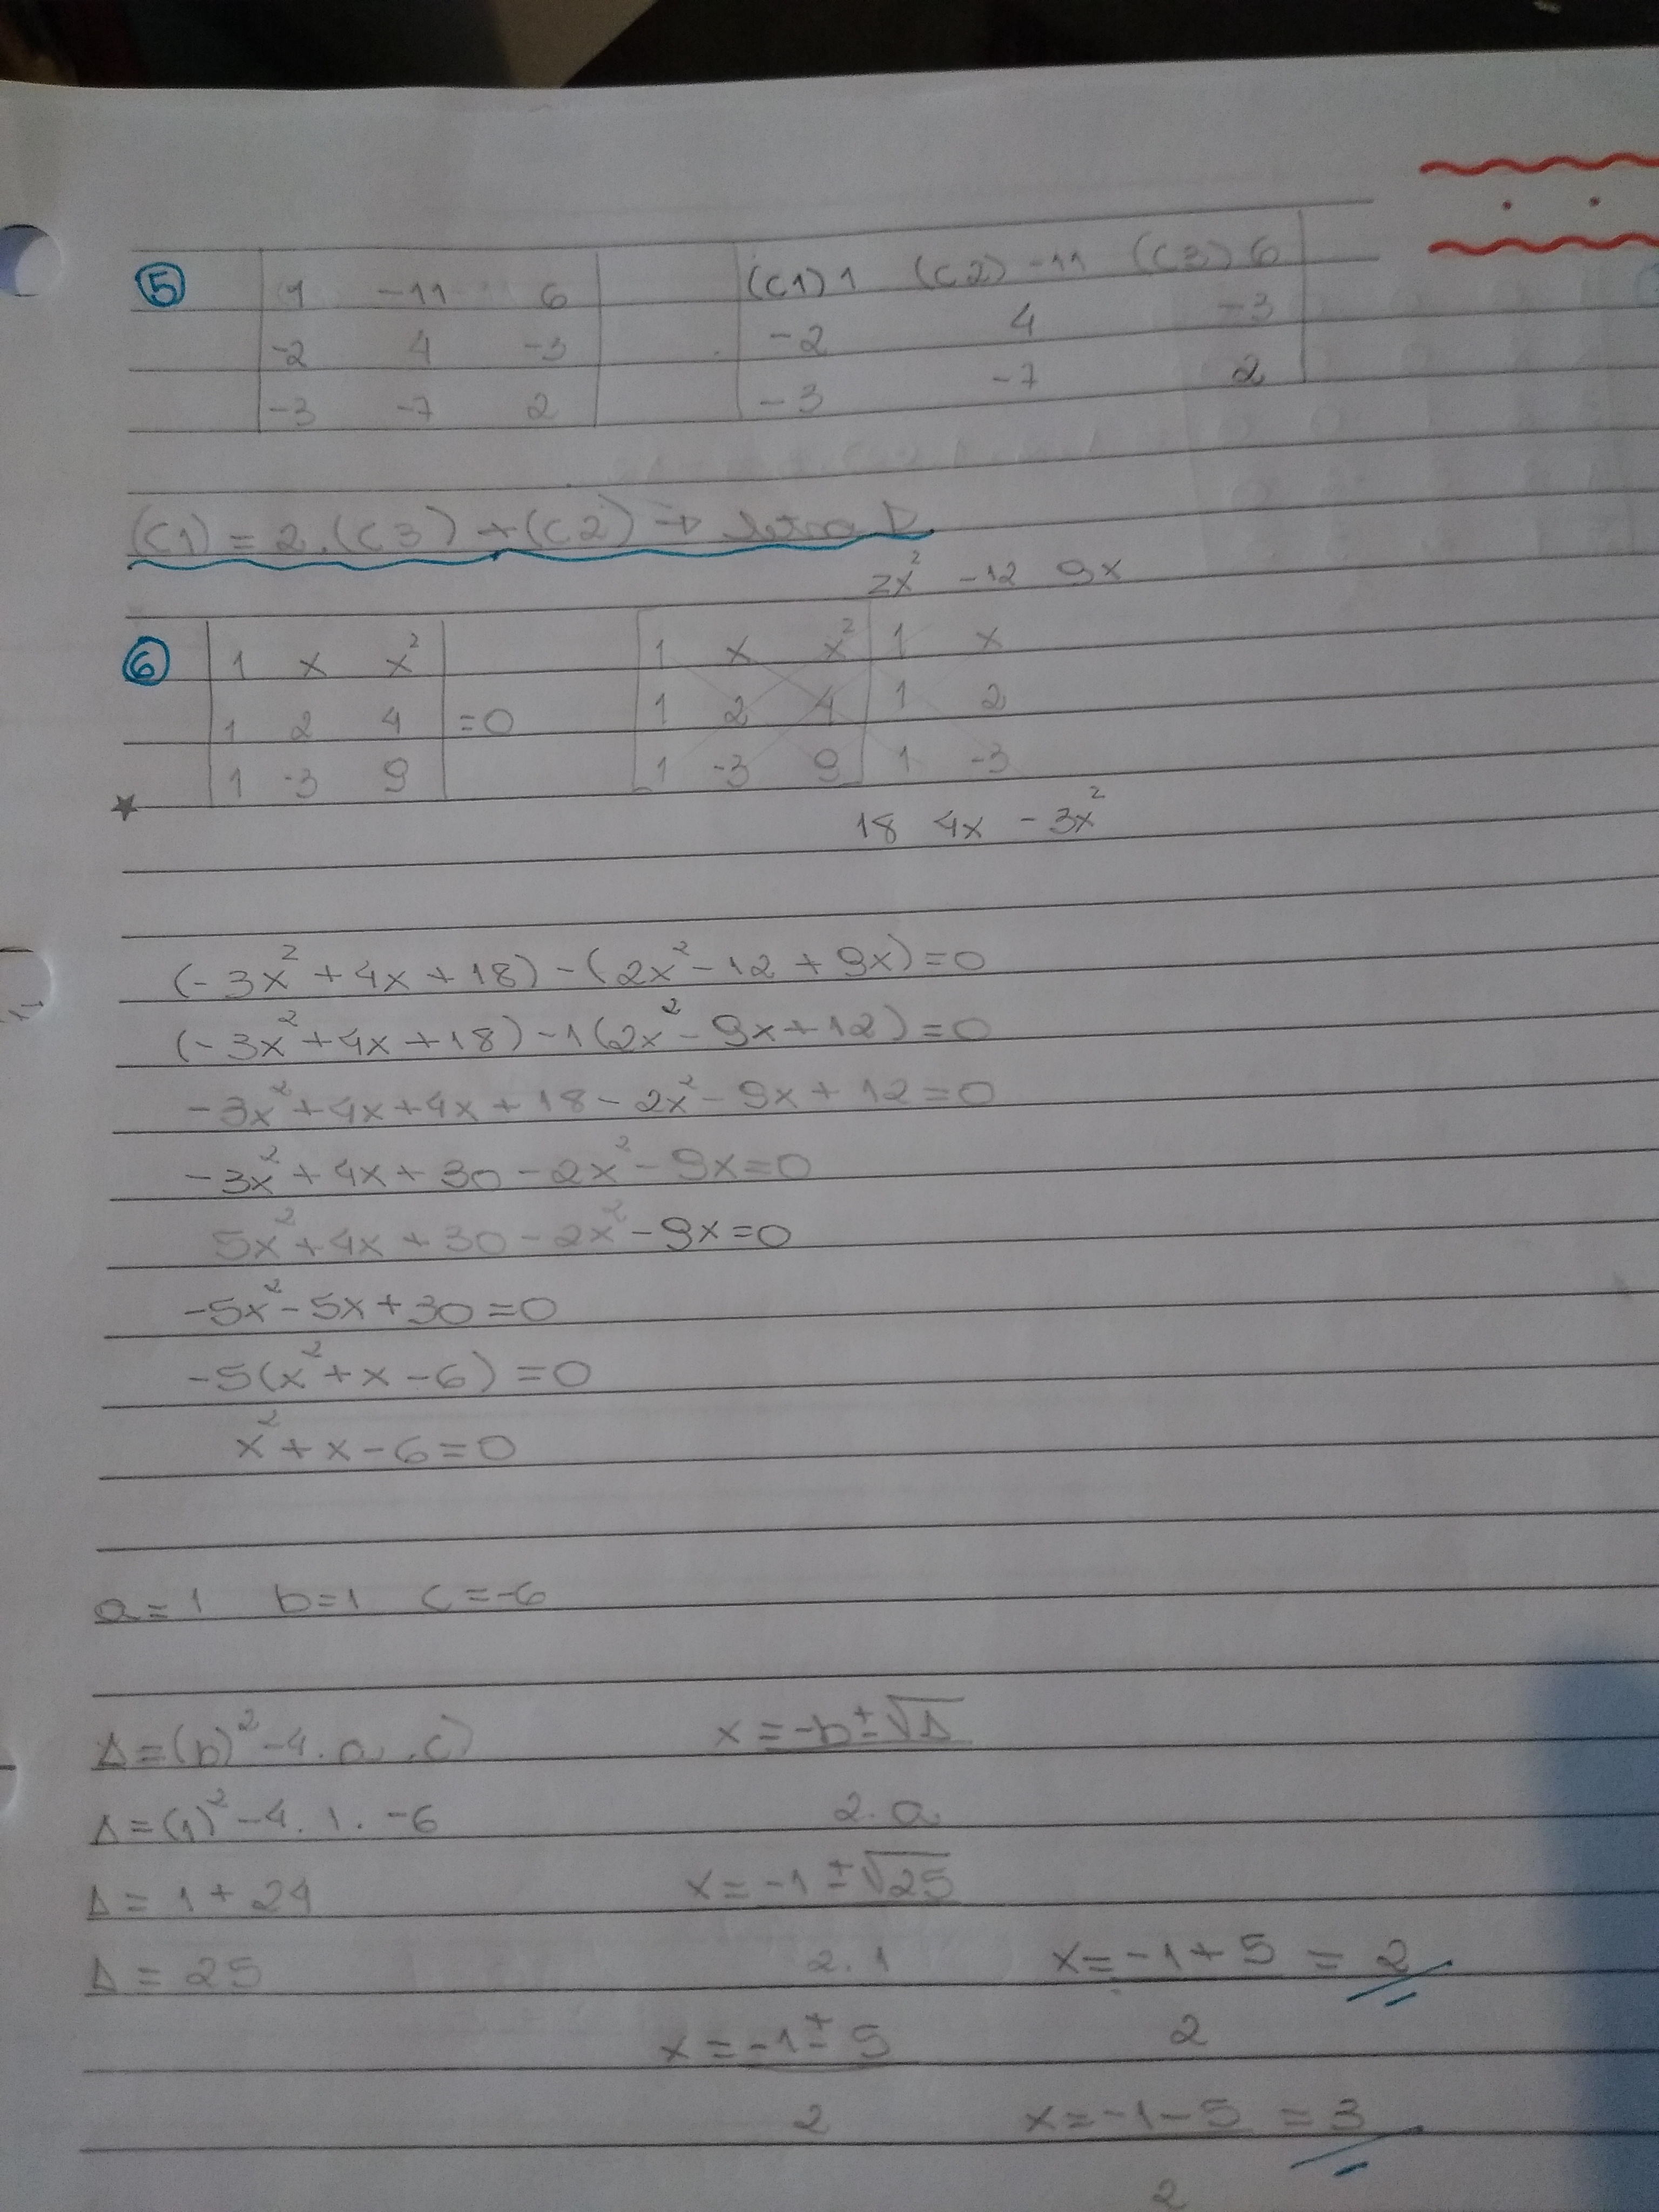 5 1 -11 6 (C1) 1 (C2) -11 (C3) 6
-2 4 -3 -2 4 -3
-3 -7 2 -3 -7 2
(C1) = 2.(C3) + (C2) → letra D
2x² -12 9x
6 1 x x² 1 x x² 1 x
1 2 4 =0 1 2 4 1 2
1 -3 9 1 -3 9 1 -3
18 4x -3x²
(-3x² + 4x + 18) - (2x² - 12 + 9x) = 0
(-3x² + 4x + 18) - 1(2x² - 9x + 12) = 0
-3x² + 4x + 4x + 18 - 2x² - 9x + 12 = 0
-3x² + 4x + 30 - 2x² - 9x = 0
5x² + 4x + 30 - 2x² - 9x = 0
-5x² - 5x + 30 = 0
-5(x² + x - 6) = 0
x² + x - 6 = 0
a = 1 b = 1 c = -6
Δ = (b)² - 4 . a . c) x = -b ± √Δ
Δ = (1)² - 4 . 1 . -6 2 . a
Δ = 1 + 24 x = -1 ± √25
Δ = 25 2 . 1 x = -1 + 5 = 2
x = -1 ± 5 2
2 x = -1 - 5 = 3
2